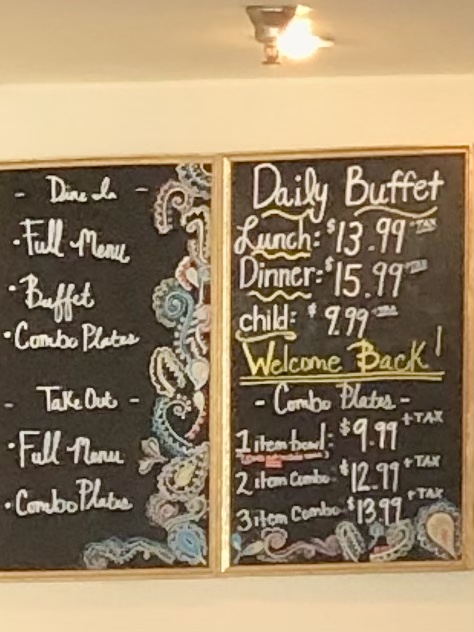 - Dine In -
• Full Menu
• Buffet
• Combo Plates
- Take Out -
• Full Menu
• Combo Plates
Daily Buffet
Lunch: $13.99 +TAX
Dinner: $15.99 +TAX
child: $9.99 +TAX
Welcome Back!
- Combo Plates -
1 item bowl: $9.99 +TAX
2 item Combo $12.99 +TAX
3 item Combo $13.99 +TAX